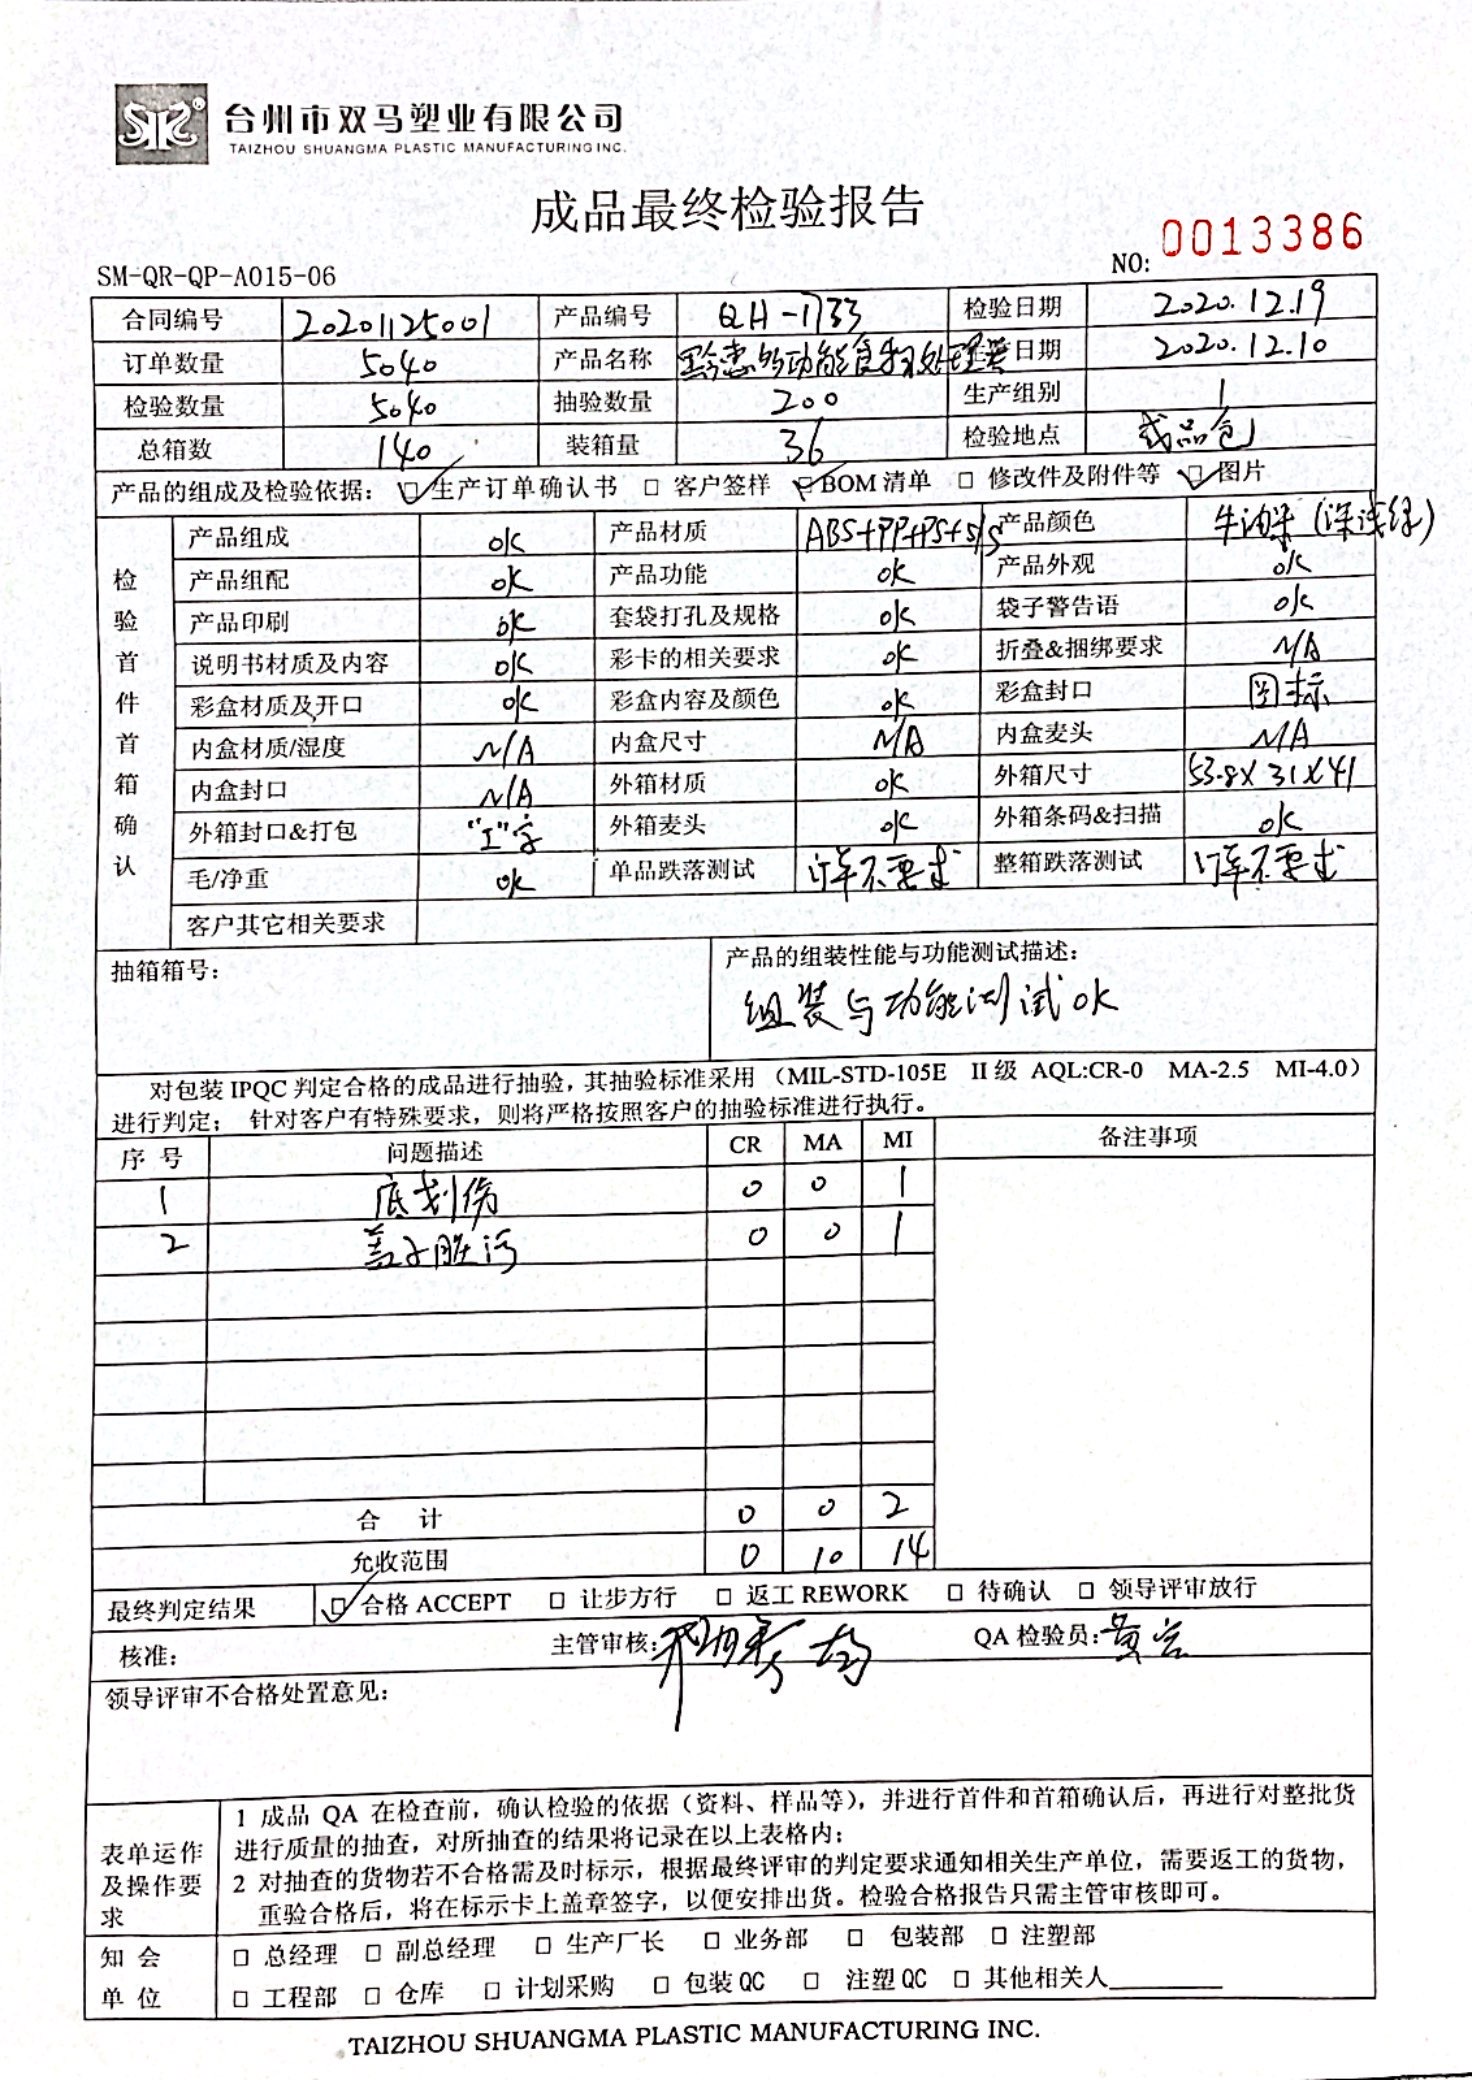 台州市双马塑业有限公司
TAIZHOU SHUANGMA PLASTIC MANUFACTURING INC.
成品最终检验报告
NO: 0013386
SM-QR-QP-A015-06
合同编号 20201125001 产品编号 QH-1733 检验日期 2020.12.19
订单数量 5040 产品名称 多功能食物处理器 日期 2020.12.10
检验数量 5040 抽验数量 200 生产组别 1
总箱数 140 装箱量 36 检验地点 成品仓
产品的组成及检验依据: ☑ 生产订单确认书 □ 客户签样 ☑ BOM 清单 □ 修改件及附件等 ☑ 图片
检验首件首箱确认
产品组成 ok 产品材质 ABS+PP+PS+S/S 产品颜色 牛油果(深浅绿)
产品组配 ok 产品功能 ok 产品外观 ok
产品印刷 ok 套袋打孔及规格 ok 袋子警告语 ok
说明书材质及内容 ok 彩卡的相关要求 ok 折叠&捆绑要求 N/A
彩盒材质及开口 ok 彩盒内容及颜色 ok 彩盒封口 圆标
内盒材质/湿度 N/A 内盒尺寸 N/A 内盒麦头 N/A
内盒封口 N/A 外箱材质 ok 外箱尺寸 53.8X31X41
外箱封口&打包 "工"字 外箱麦头 ok 外箱条码&扫描 ok
毛/净重 ok 单品跌落测试 订单不要求 整箱跌落测试 订单不要求
客户其它相关要求
抽箱箱号: 产品的组装性能与功能测试描述:
组装与功能测试ok
对包装 IPQC 判定合格的成品进行抽验,其抽验标准采用 (MIL-STD-105E II级 AQL:CR-0 MA-2.5 MI-4.0)
进行判定; 针对客户有特殊要求,则将严格按照客户的抽验标准进行执行。
序 号 问题描述 CR MA MI 备注事项
1 底划伤 0 0 1
2 盖子脏污 0 0 1
合 计 0 0 2
允收范围 0 10 14
最终判定结果 ☑ 合格 ACCEPT □ 让步方行 □ 返工 REWORK □ 待确认 □ 领导评审放行
核准: 主管审核: QA 检验员:
领导评审不合格处置意见:
表单运作及操作要求
1 成品 QA 在检查前,确认检验的依据(资料、样品等),并进行首件和首箱确认后,再进行对整批货
进行质量的抽查,对所抽查的结果将记录在以上表格内;
2 对抽查的货物若不合格需及时标示,根据最终评审的判定要求通知相关生产单位,需要返工的货物,
重验合格后,将在标示卡上盖章签字,以便安排出货。检验合格报告只需主管审核即可。
知 会 □ 总经理 □ 副总经理 □ 生产厂长 □ 业务部 □ 包装部 □ 注塑部
单 位 □ 工程部 □ 仓库 □ 计划采购 □ 包装 QC □ 注塑 QC □ 其他相关人
TAIZHOU SHUANGMA PLASTIC MANUFACTURING INC.